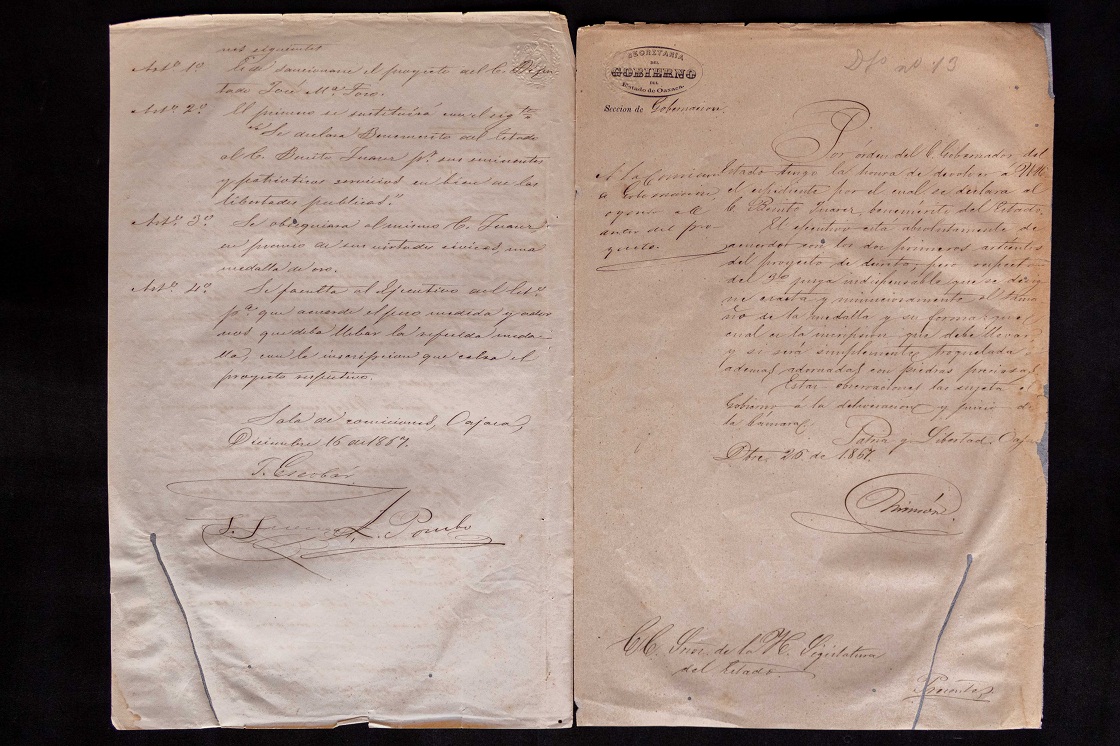 nos siguientes
Art.º 1º Es de sancionarse el proyecto del C. Dipu-
tado José M.ª Toro.
Art.º 2º El primero se sustituirá con el sigte
"Se declara Benemérito del Estado
al C. Benito Juarez p.r sus eminentes
y patrioticos servicios en bien de las
libertades publicas."
Art.º 3º Se obsequiara al mismo C. Juarez
en premio de sus virtudes civicas, una
medalla de oro.
Art.º 4º Se faculta al Ejecutivo del Est.º
p.ª que acuerde el peso medida y ador
nos que deba llebar la referida meda-
lla, con la inscripcion que espresa el
proyecto respectivo.
Sala de comiciones, Oajaca,
Diciembre 16 de 1867.
T. Escobar
A. Pombo
SECRETARIA
DEL
GOBIERNO
DEL
Estado de Oaxaca.
Dto nº 13
Seccion de Gobernacion.
A la Comicion
a Gobernacion
autor del pro-
yecto.
Por órden del C. Gobernador del
Estado tengo la honra de devolver á VVHH
el espediente por el cual se declara al
C. Benito Juarez, benemérito del Estado.
El ejecutivo está absolutamente de
acuerdo con los dos primeros artículos
del proyecto de decreto; pero respecto
del 3º juzga indispensable que se desig
ne exacta y minuciosamente el tama
ño de la medalla y su forma:
cual es la inscripsion que debe llevar
y si será simplemente troquelada
ademas adornada con piedras preciosas.
Estas observaciones las sujeta el
Gobierno á la deliberacion y juicio de
la Cámara.
Patria y Libertad. Oajaca
Dbre. 26 de 1867.
Rincón
CC. Srios. de la H. Legislatura
del Estado.
Presente